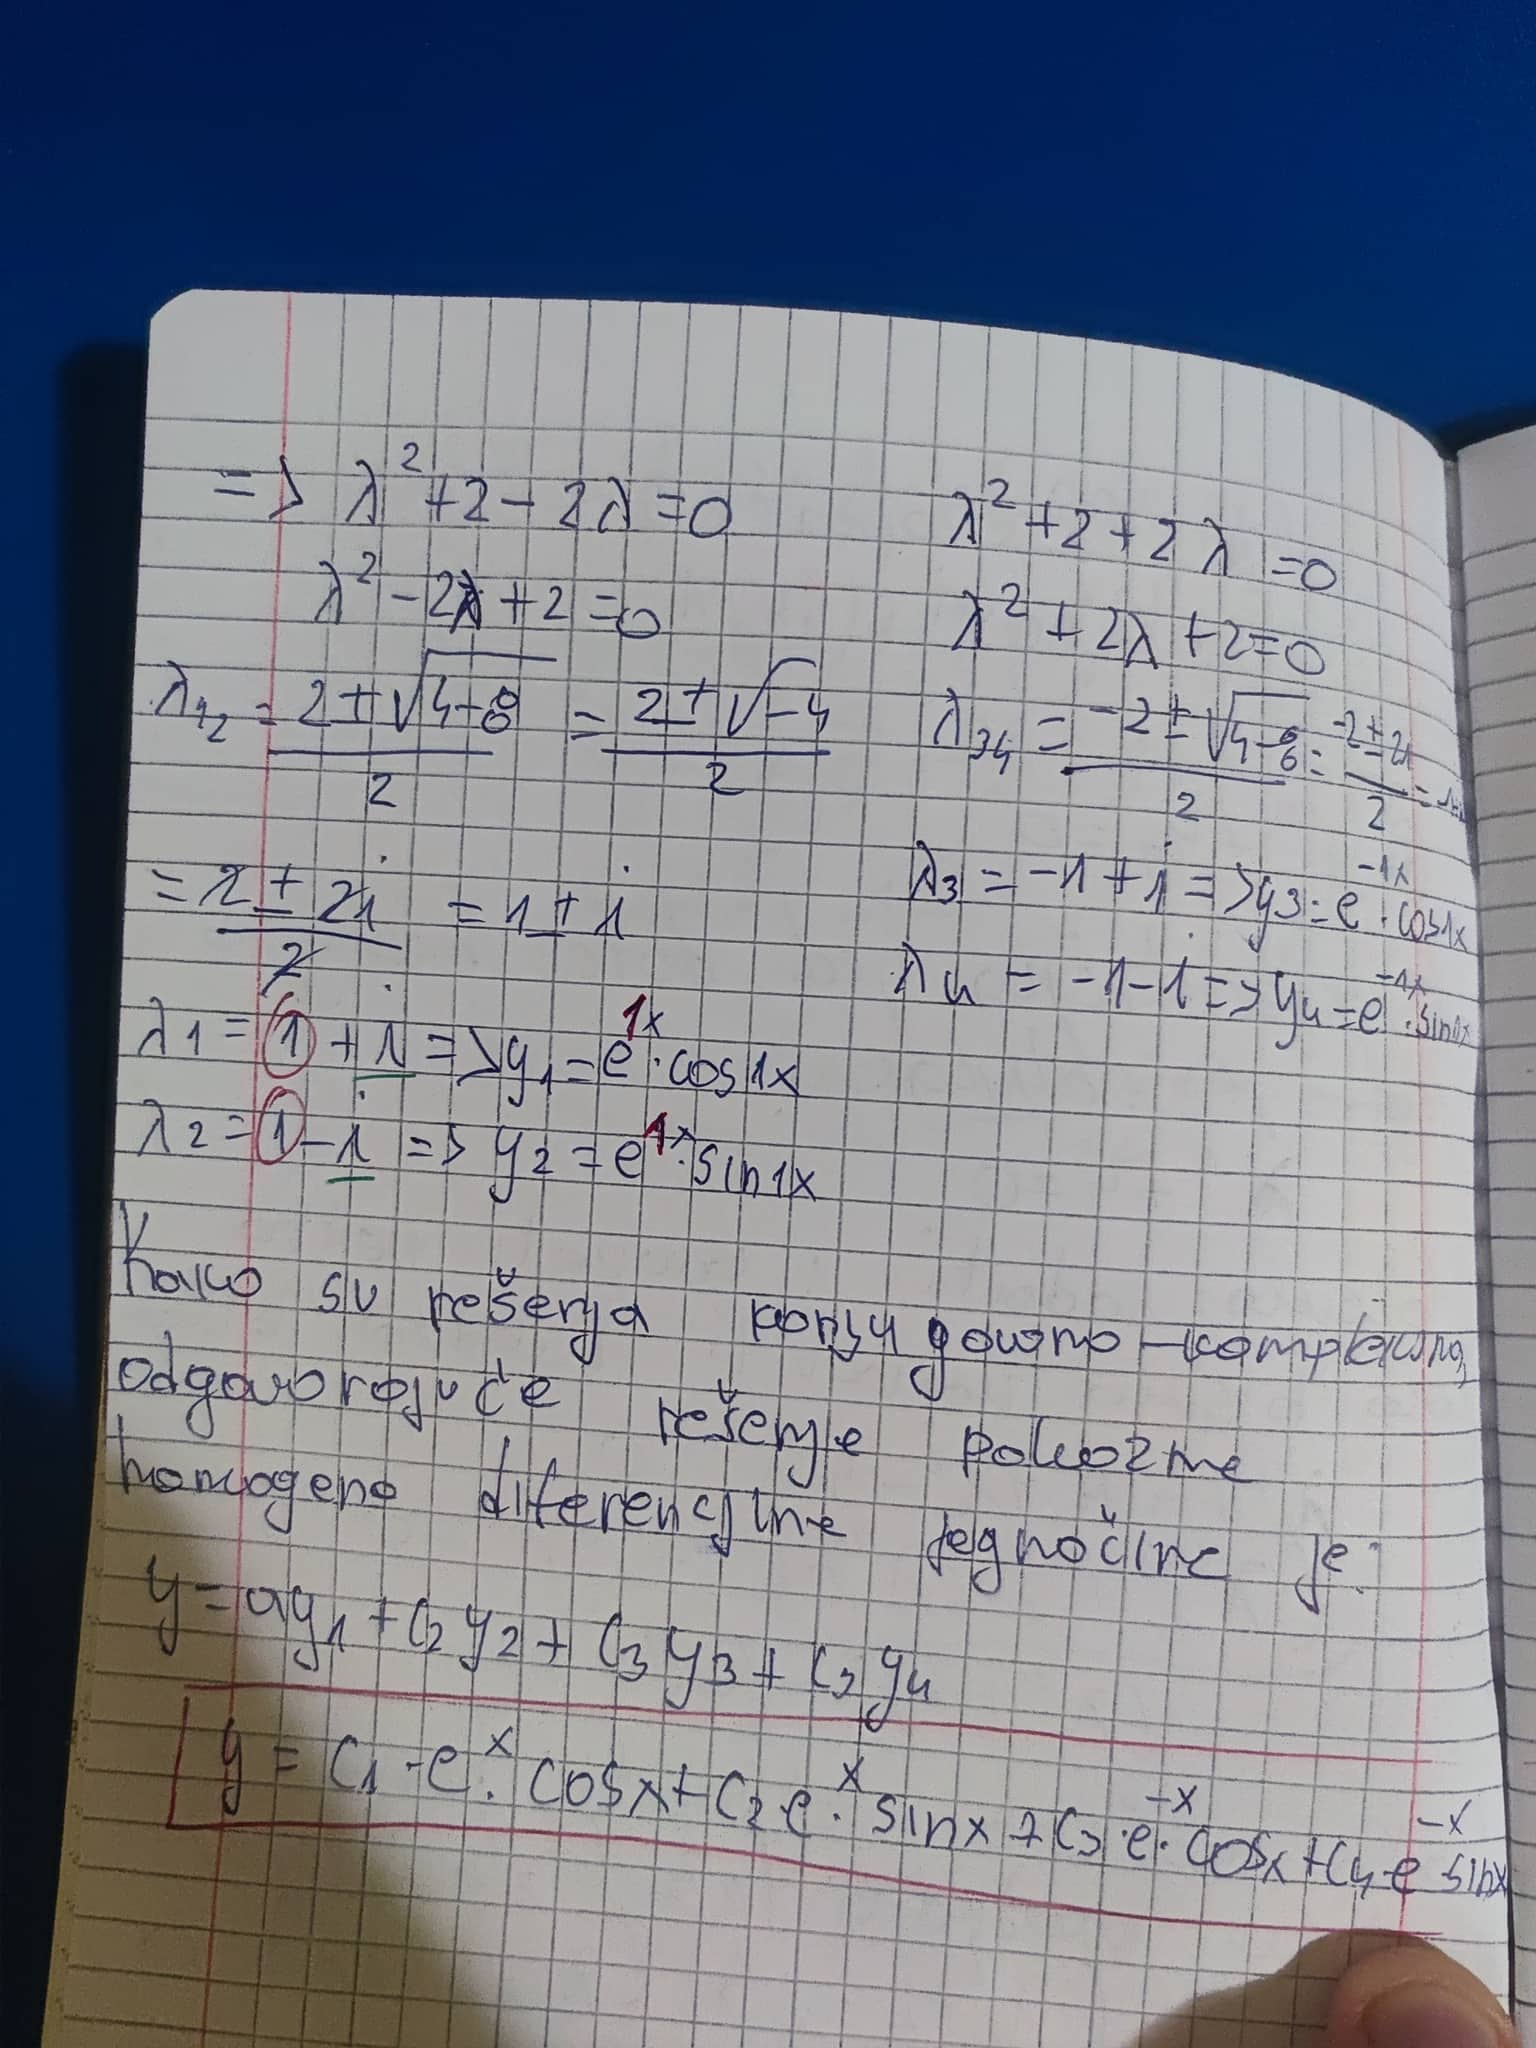 => λ² + 2 - 2λ = 0
λ² - 2λ + 2 = 0
λ12 = (2 ± √(4-8))/2 = (2 ± √-4)/2
= (2 ± 2i)/2 = 1 ± i
λ1 = 1 + i => y1 = e^1x · cos1x
λ2 = 1 - i => y2 = e^1x · sin1x
λ² + 2 + 2λ = 0
λ² + 2λ + 2 = 0
λ34 = (-2 ± √(4-8))/2 = (-2 ± 2i)/2 =
λ3 = -1 + i => y3 = e^-1x · cos1x
λ4 = -1 - i => y4 = e^-1x · sin1x
Kako su rešenja konjugovano-kompleksna,
odgovarajuće rešenje polazne
homogene diferencijlne jegnočine je:
y = c1y1 + c2y2 + c3y3 + c3y4
y = c1 · e^x · cosx + c2 e^x · sinx + c3 · e^-x · cosx + c4 · e^-x sinx